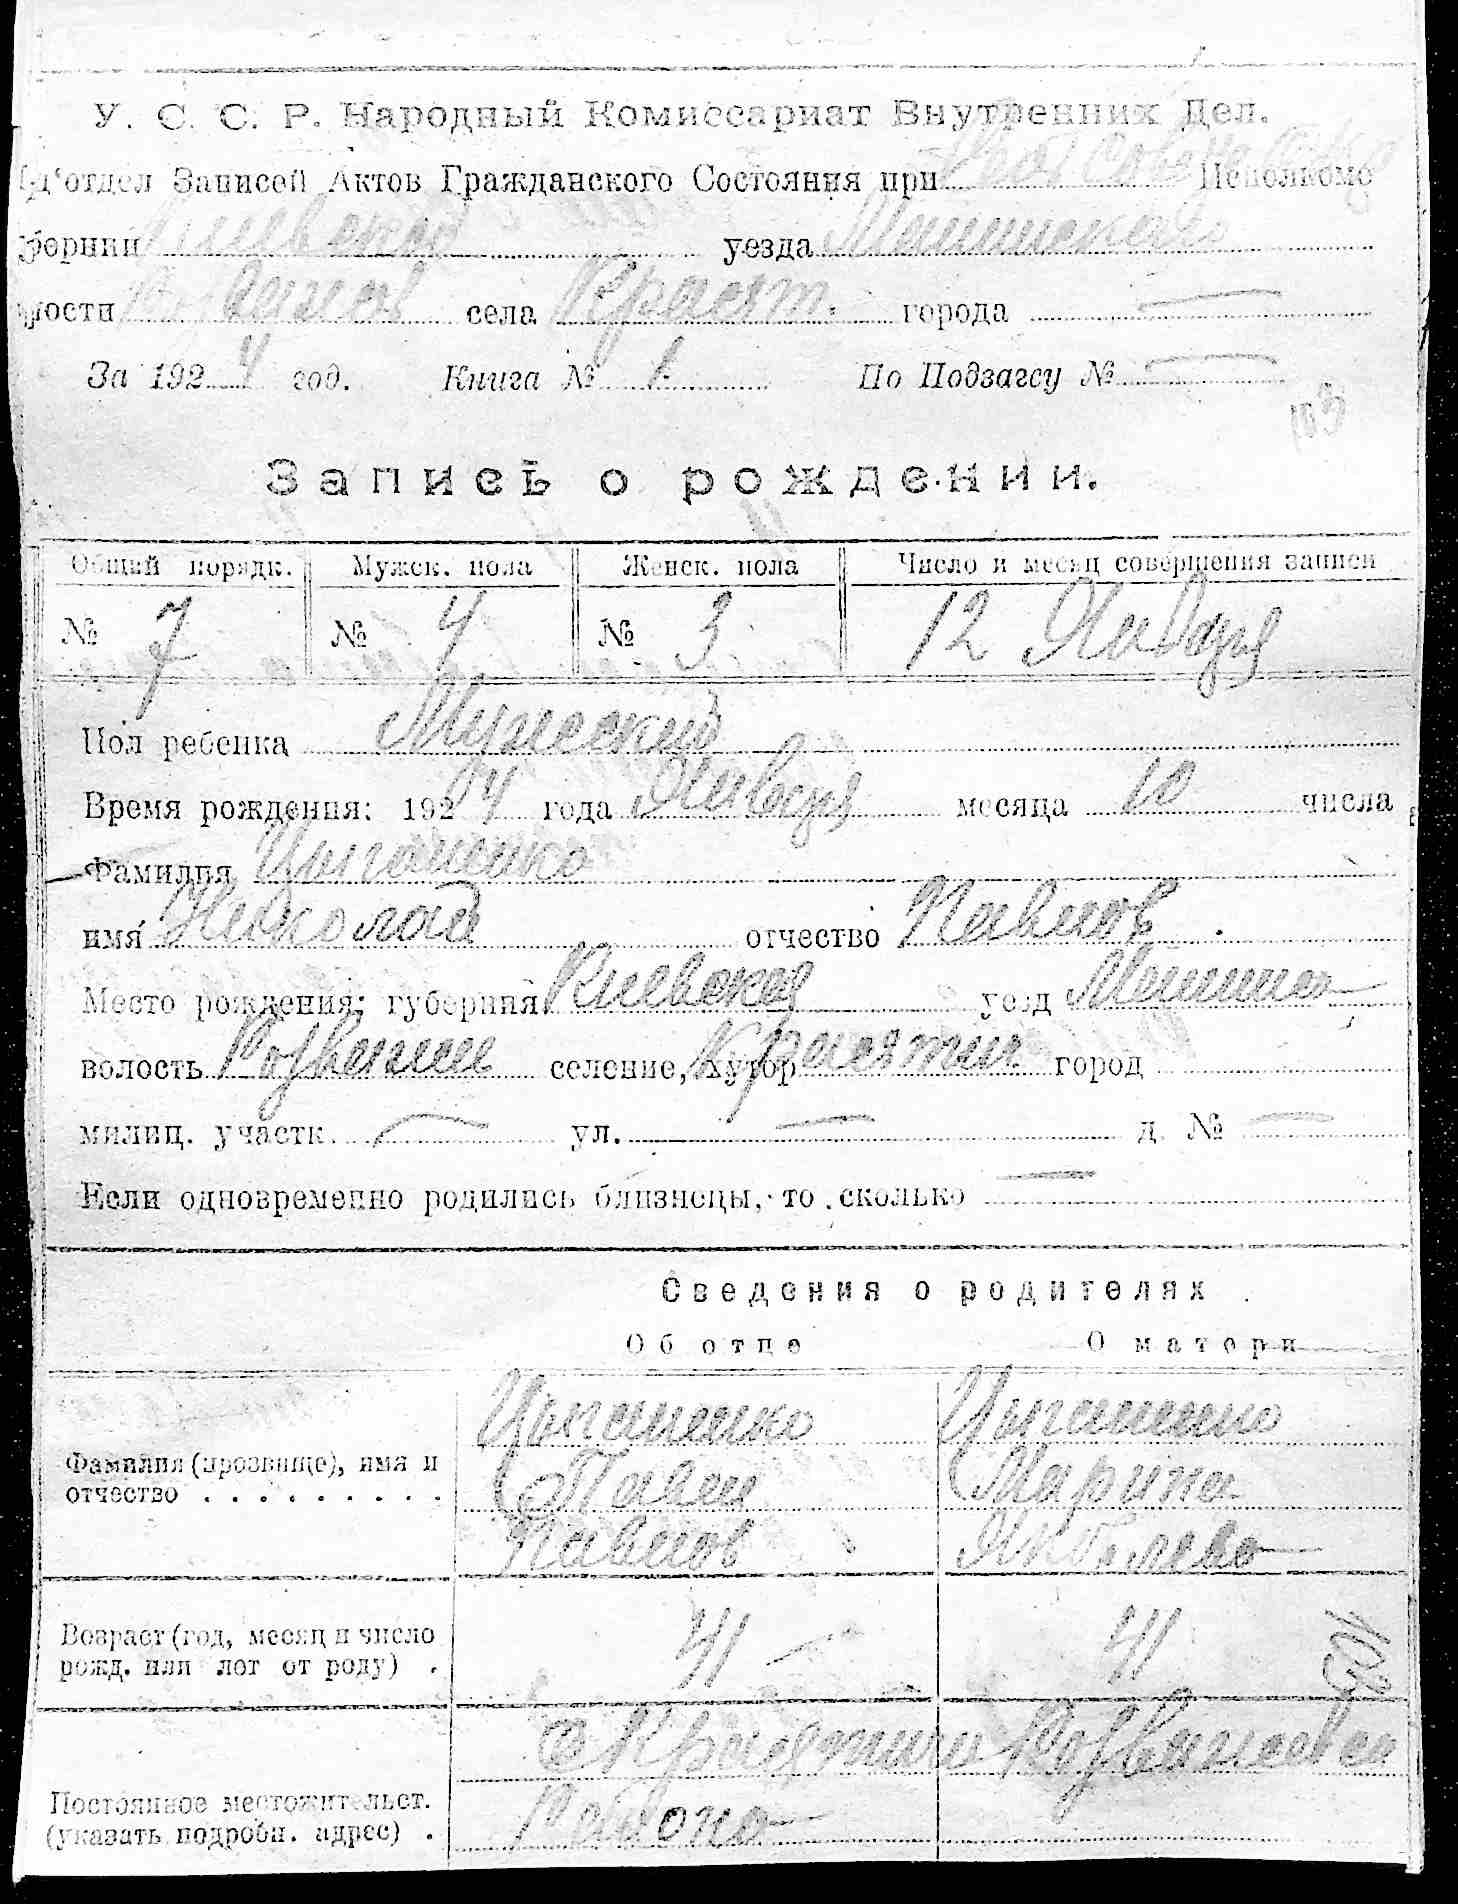 У. С. С. Р. Народный Комиссариат Внутренних Дел.
д'отдел Записей Актов Гражданского Состояния при Исполкомо
бернии Киевской уезда
ости села Красят. города —
За 1924 год. Книга № 1 По Подзагсу № —
103
Запись о рождении.
Общий порядк. Мужск. пола Женск. пола Число и месяц совершения записи
№ 7 № 4 № 3 12 Января
Пол ребенка Мужеский
Время рождения: 1924 года Января месяца 10 числа
Фамилия Цыганенко
имя Николай отчество Павлов
Место рождения: губерния Киевская уезд
волость селение, хутор Красятич город
милиц. участк. — ул. — д. № —
Если одновременно родились близнецы, то сколько —
Сведения о родителях
Об отце О матери
Цыганенко Цыганенко
Фамилия (прозвище), имя и отчество . . . . . . . . . Павел Марина
Павлов Яковлева
Возраст (год, месяц и число рожд. или лет от роду) . 41 41
103
Постоянное местожительст. (указать подробн. адрес) .
Района